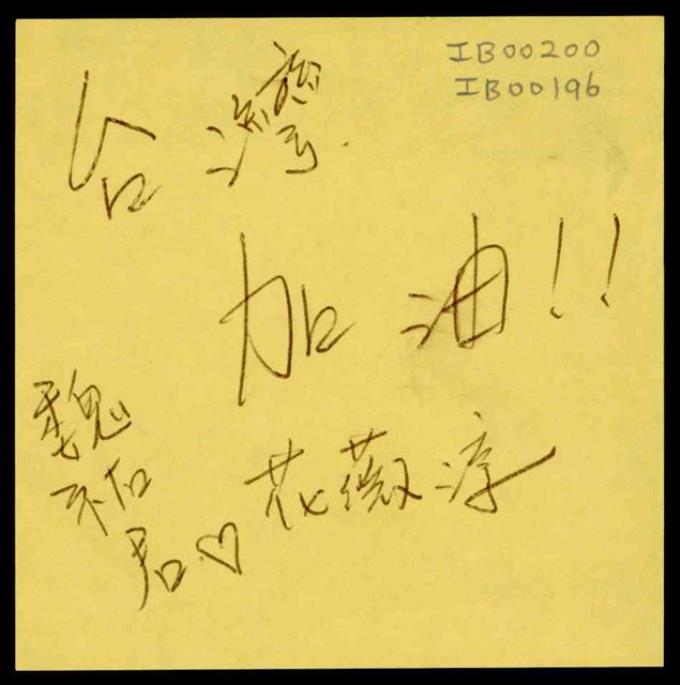 IB00200
IB00196
台灣
加油!!
魏祐君♡花薇淳